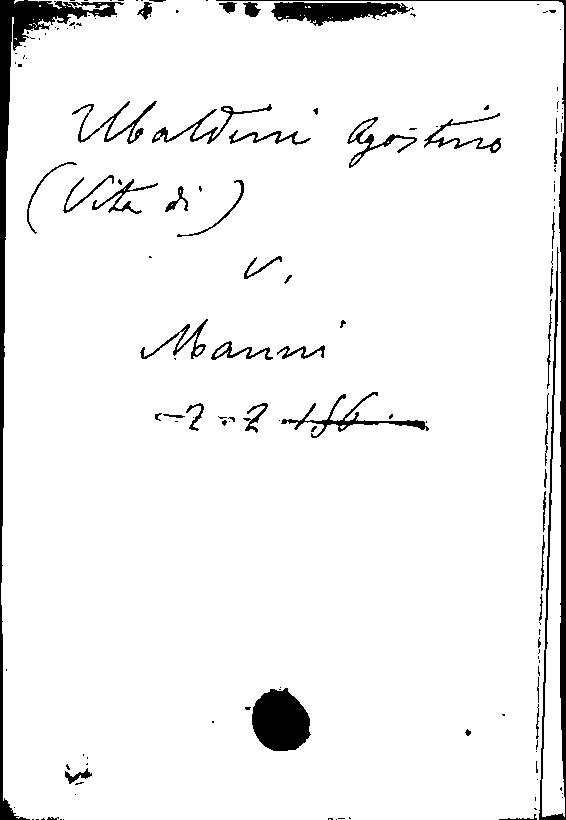 Ubaldini Agostino
(Vita di)
v.
Manni
-2-2-186-